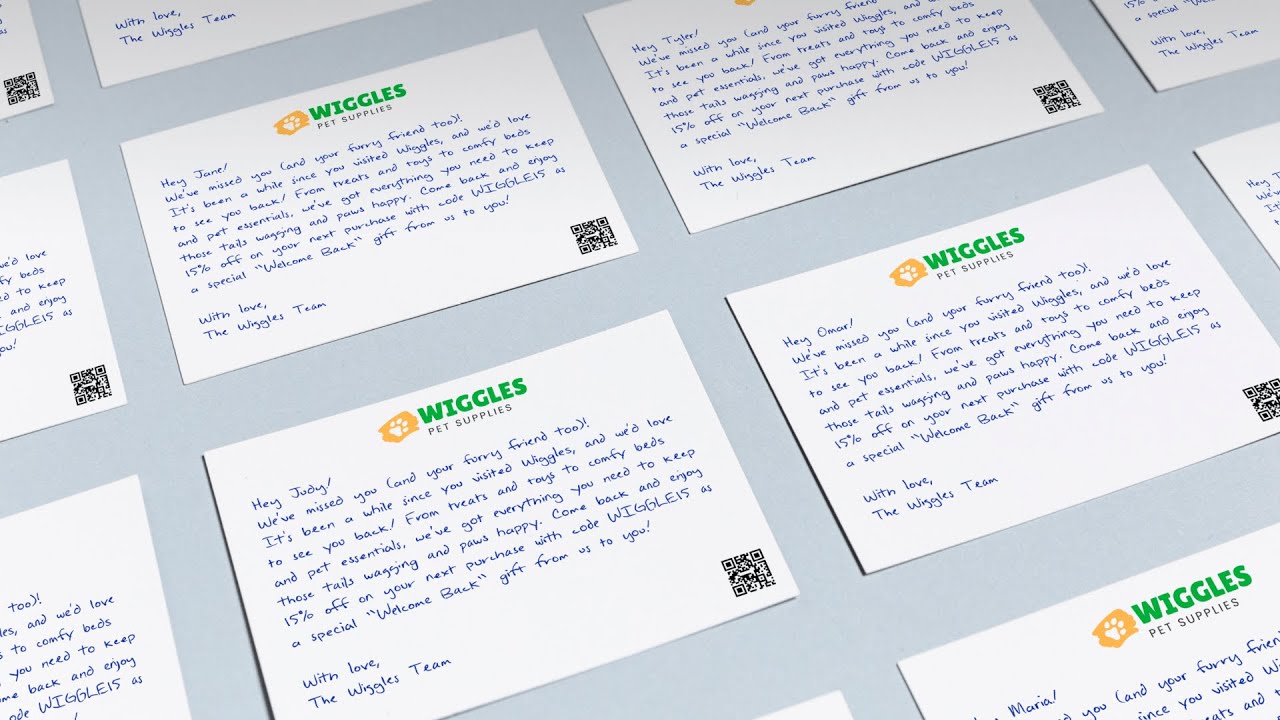 With love,
The Wiggles Team
WIGGLES
PET SUPPLIES
Hey Jane!
We've missed you (and your furry friend too)!
It's been a while since you visited Wiggles, and we'd love
to see you back! From treats and toys to comfy beds
and pet essentials, we've got everything you need to keep
those tails wagging and paws happy. Come back and enjoy
15% off on your next purchase with code WIGGLE15 as
a special "Welcome Back" gift from us to you!
With love,
The Wiggles Team
Hey Tyler!
We've missed you (and your furry friend
It's been a while since you visited Wiggles, and we'd love
to see you back! From treats and toys to comfy beds
and pet essentials, we've got everything you need to keep
those tails wagging and paws happy. Come back and enjoy
15% off on your next purchase with code WIGGLE15 as
a special "Welcome Back" gift from us to you!
With love,
The Wiggles Team
With love,
The Wiggles Team
and we'd love
comfy beds
need to keep
and enjoy
WIGGLE15 as
you!
WIGGLES
PET SUPPLIES
Hey Judy!
We've missed you (and your furry friend too)!
It's been a while since you visited Wiggles, and we'd love
to see you back! From treats and toys to comfy beds
and pet essentials, we've got everything you need to keep
those tails wagging and paws happy. Come back and enjoy
15% off on your next purchase with code WIGGLE15 as
a special "Welcome Back" gift from us to you!
With love,
The Wiggles Team
WIGGLES
PET SUPPLIES
Hey Omar!
We've missed you (and your furry friend too)!
It's been a while since you visited Wiggles, and we'd love
to see you back! From treats and toys to comfy beds
and pet essentials, we've got everything you need to keep
those tails wagging and paws happy. Come back and enjoy
15% off on your next purchase with code WIGGLE15 as
a special "Welcome Back" gift from us to you!
With love,
The Wiggles Team
Hey
We've
It's
to
too)!
and we'd love
to comfy beds
you need to keep
back and enjoy
code WIGGLE15 as
WIGGLES
PET SUPPLIES
Maria!
missed you (and your furry
been a while since you visited
see you back! From treats and
essentials, we've got